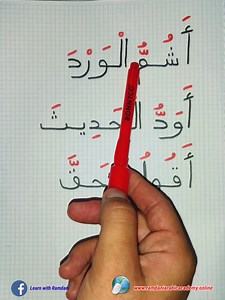 أَشُمُّ الْوَرْدَ
أَوَدُّ الْحَدِيثَ
أَقُولُ الْحَقَّ
Learn with Ramdan
www.ramdanarabicacademy.online